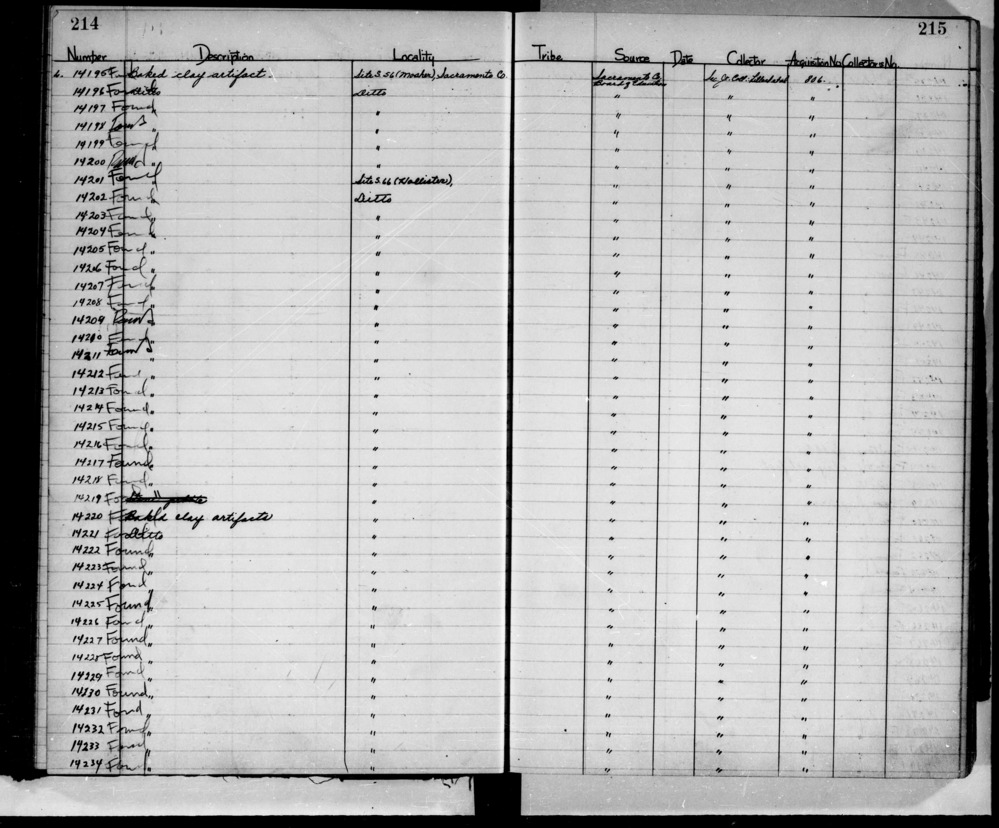 214
215
Number Description Locality Tribe Source Date Collector Acquisition No. Collectors No.
6. 14195 Baked clay artifact. Site S.56 (Mosher), Sacramento Co. Sacramento Co. 806.
14196 Found Ditto Ditto " " "
14197 Found " " " " "
14198 " " " " "
14199 " " " " "
14200 " " " " "
14201 Found " Site S.66 (Hollister), " " "
14202 Found " Ditto " " "
14203 Found " " " " "
14204 Found " " " " "
14205 Found " " " " "
14206 Found " " " " "
14207 Found " " " " "
14208 Found " " " " "
14209 Found " " " " "
14210 Found " " " " "
14211 Found " " " " "
14212 Found " " " " "
14213 Found " " " " "
14214 Found " " " " "
14215 Found " " " " "
14216 Found " " " " "
14217 Found " " " " "
14218 Found " " " " "
14219 Found " " " "
14220 Baked clay artifacts " " " "
14221 Found Ditto " " " "
14222 Found " " " " "
14223 Found " " " " "
14224 Found " " " " "
14225 Found " " " " "
14226 Found " " " " "
14227 Found " " " " "
14228 Found " " " " "
14229 Found " " " " "
14230 Found " " " " "
14231 Found " " " " "
14232 Found " " " " "
14233 Found " " " " "
14234 Found " " " " "